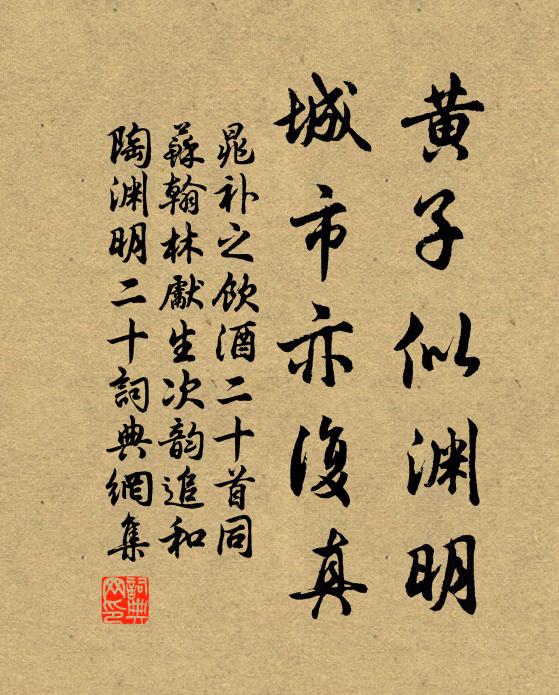 黄子似渊明
城市亦復真
晁补之饮酒二十首同
蘇翰林獻生次韵追和
陶渊明二十詞典網集
詞典
网印